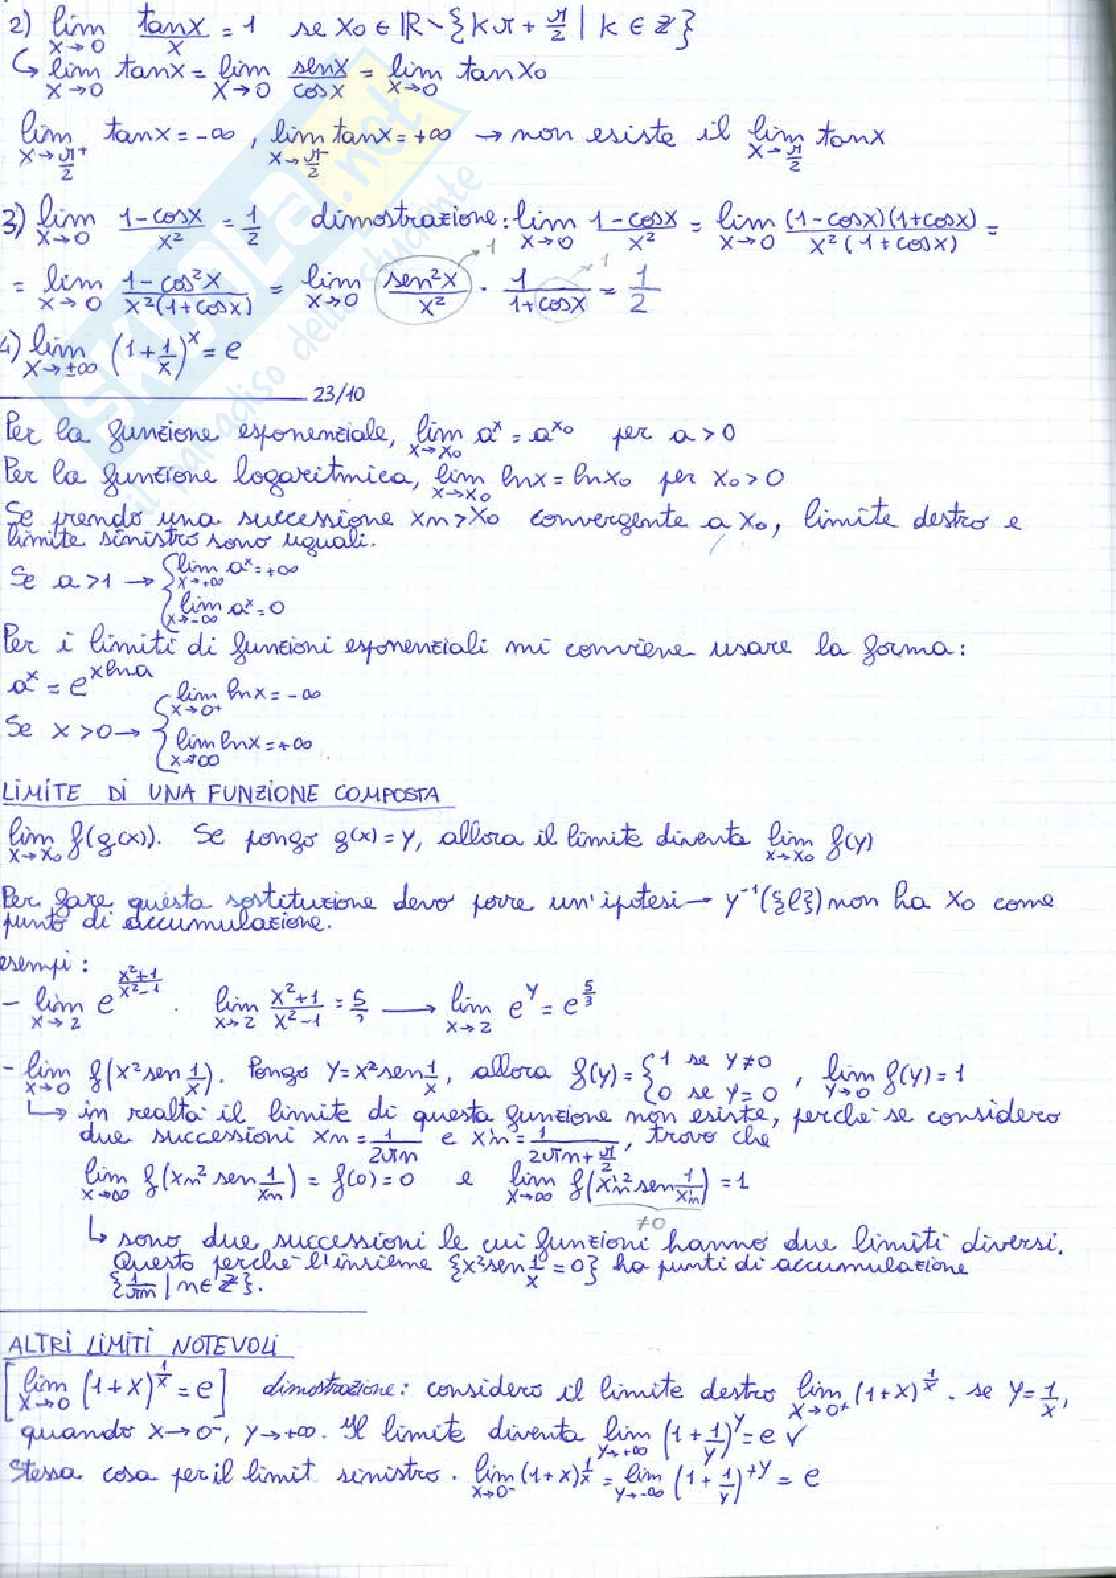 2) lim x→0 tanx/x = 1 se x₀ ∈ ℝ \ {kπ + π/2 | k ∈ ℤ}
↳ lim x→0 tanx = lim x→0 senx/cosx = lim x→0 tanx₀
lim x→π/2⁺ tanx = -∞ , lim x→π/2⁻ tanx = +∞ → non esiste il lim x→π/2 tanx
3) lim x→0 1-cosx/x² = 1/2 dimostrazione: lim x→0 1-cosx/x² = lim x→0 (1-cosx)(1+cosx)/x²(1+cosx) =
= lim x→0 1-cos²x/x²(1+cosx) = lim x→0 sen²x/x² → 1 · 1/1+cosx → 1 = 1/2
4) lim x→±∞ (1+1/x)ˣ = e
23/10
Per la funzione esponenziale, lim x→x₀ aˣ = a^x₀ per a>0
Per la funzione logaritmica, lim x→x₀ lnx = lnx₀ per x₀>0
Se prendo una successione xn>x₀ convergente a x₀, limite destro e
limite sinistro sono uguali.
Se a>1 → { lim x→+∞ aˣ = +∞
{ lim x→-∞ aˣ = 0
Per i limiti di funzioni esponenziali mi conviene usare la forma:
aˣ = e^xlna
Se x>0 → { lim x→0⁺ lnx = -∞
{ lim x→+∞ lnx = +∞
LIMITE DI UNA FUNZIONE COMPOSTA
lim x→x₀ f(g(x)). Se pongo g(x) = y, allora il limite diventa lim x→x₀ f(y)
Per fare questa sostituzione devo porre un'ipotesi → y⁻¹({l}) non ha x₀ come
punto di accumulazione.
esempi:
- lim x→2 e^(x²+1/x²-1) . lim x→2 x²+1/x²-1 = 5/3 → lim x→2 e^y = e^5/3
- lim x→0 f(x²sen1/x). Pongo y=x²sen1/x, allora f(y) = {1 se y≠0 {0 se y=0 , lim y→0 f(y) = 1
↳ in realtà il limite di questa funzione non esiste, perchè se considero
due successioni xn = 1/2πn e x'n = 1/2πn+π/2, trovo che
lim x→∞ f(xn² sen 1/xn) = f(0) = 0 e lim x→∞ f(x'n² sen 1/x'n) = 1
≠0
↳ sono due successioni le cui funzioni hanno due limiti diversi.
Questo perchè l'insieme {x²sen1/x = 0} ha punti di accumulazione
{1/πn | n∈ℤ}.
ALTRI LIMITI NOTEVOLI
[lim x→0 (1+x)^1/x = e] dimostrazione: considero il limite destro lim x→0⁺ (1+x)^1/x. se y=1/x,
quando x→0⁻, y→+∞. Il limite diventa lim y→+∞ (1+1/y)^y = e ✓
Stessa cosa per il limit sinistro. lim x→0⁻ (1+x)^1/x = lim y→-∞ (1+1/y)^+y = e
SKUOLA.net
il paradiso dello studente